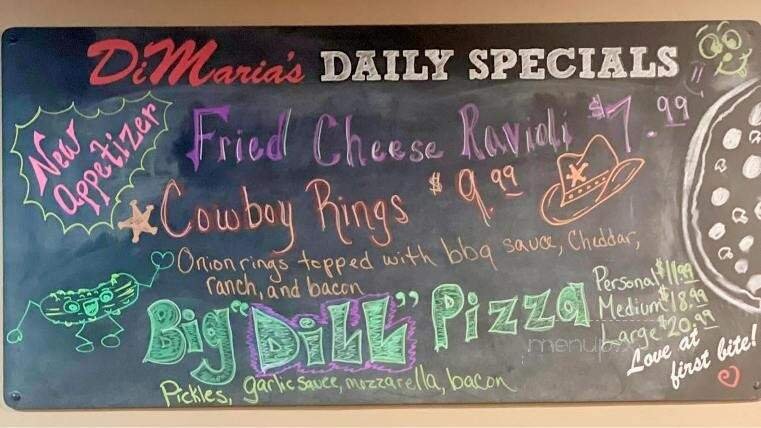 DiMaria's DAILY SPECIALS
New Appetizer
Fried Cheese Ravioli $7.99
Cowboy Rings $9.99
Onion rings topped with bbq sauce, Cheddar,
ranch, and bacon
Big "DiLL" Pizza
Personal $11.99
Medium $18.99
Large $20.99
Pickles, garlic sauce, mozzarella, bacon
Love at
first bite!